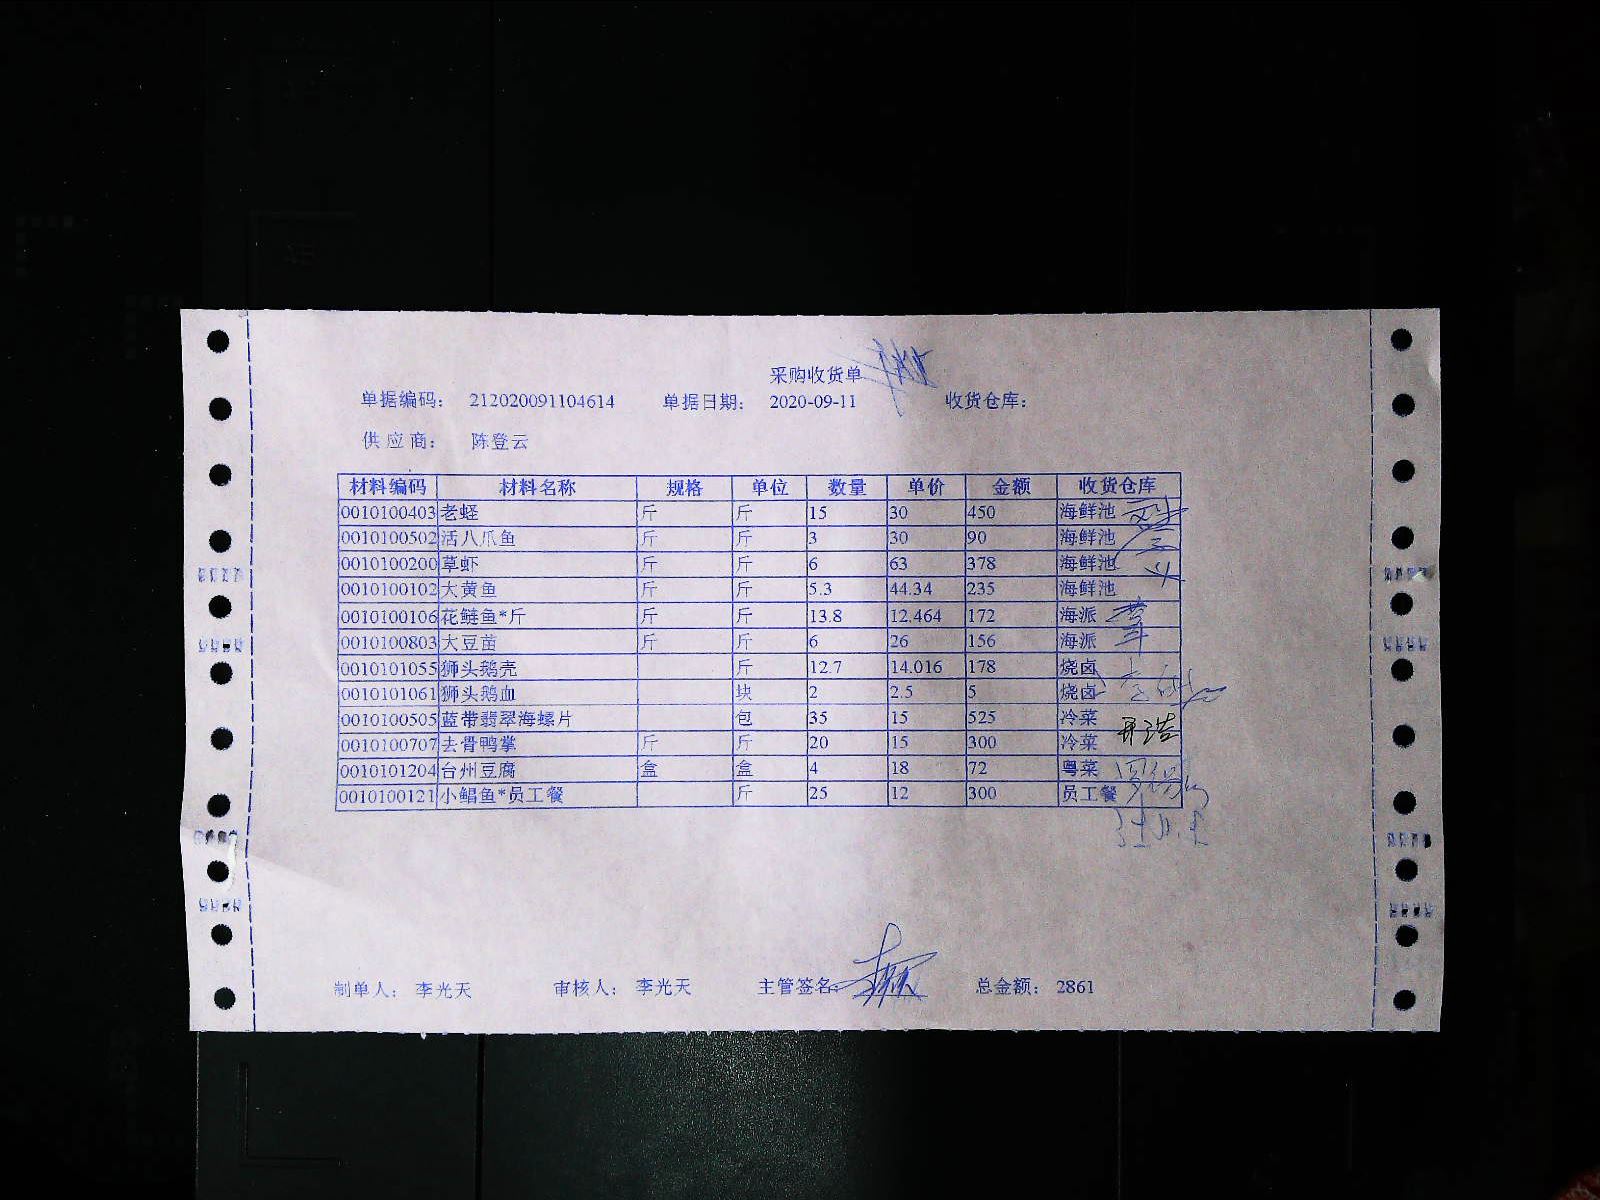 采购收货单
单据编码： 212020091104614 单据日期： 2020-09-11 收货仓库：
供应商： 陈登云
材料编码 材料名称 规格 单位 数量 单价 金额 收货仓库
0010100403 老蛏 斤 斤 15 30 450 海鲜池
0010100502 活八爪鱼 斤 斤 3 30 90 海鲜池
0010100200 草虾 斤 斤 6 63 378 海鲜池
0010100102 大黄鱼 斤 斤 5.3 44.34 235 海鲜池
0010100106 花鲢鱼*斤 斤 斤 13.8 12.464 172 海派
0010100803 大豆苗 斤 斤 6 26 156 海派
0010101055 狮头鹅壳 斤 12.7 14.016 178 烧卤
0010101061 狮头鹅血 块 2 2.5 5 烧卤
0010100505 蓝带翡翠海螺片 包 35 15 525 冷菜
0010100707 去骨鸭掌 斤 斤 20 15 300 冷菜
0010101204 台州豆腐 盒 盒 4 18 72 粤菜
0010100121 小鲳鱼*员工餐 斤 25 12 300 员工餐
制单人： 李光天 审核人： 李光天 主管签名： 总金额： 2861